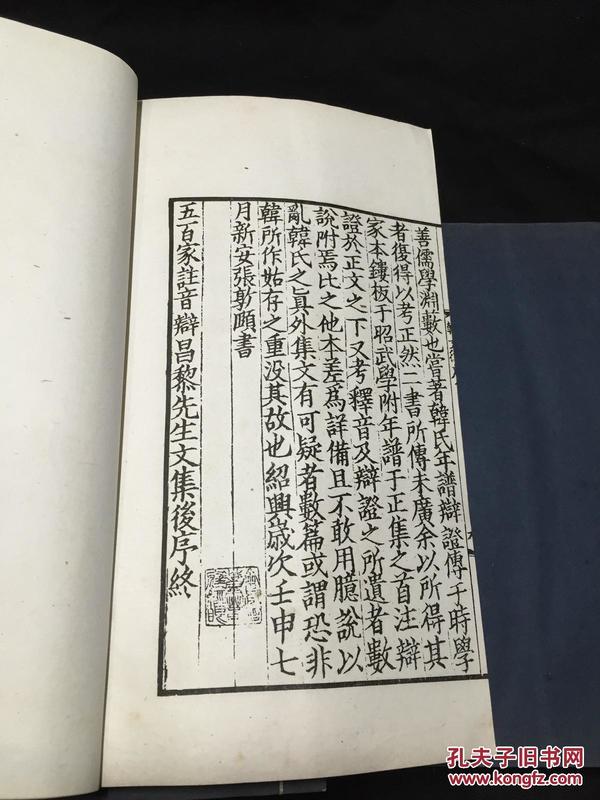 善儒學淵藪也嘗著韓氏年譜辯證傳于時學
者復得以考正然二書所傳未廣余以所得其
家本鏤板于昭武學附年譜于正集之首注辯
證於正文之下又考釋音及辯證之所遺者數
說附焉比之他本差爲詳備且不敢用臆說以
亂韓氏之眞外集文有可疑者數篇或謂恐非
韓所作姑存之重沒其故也紹興歲次壬申七
月新安張敦頤書
五百家註音辯昌黎先生文集後序終
孔夫子旧书网
www.kongfz.com